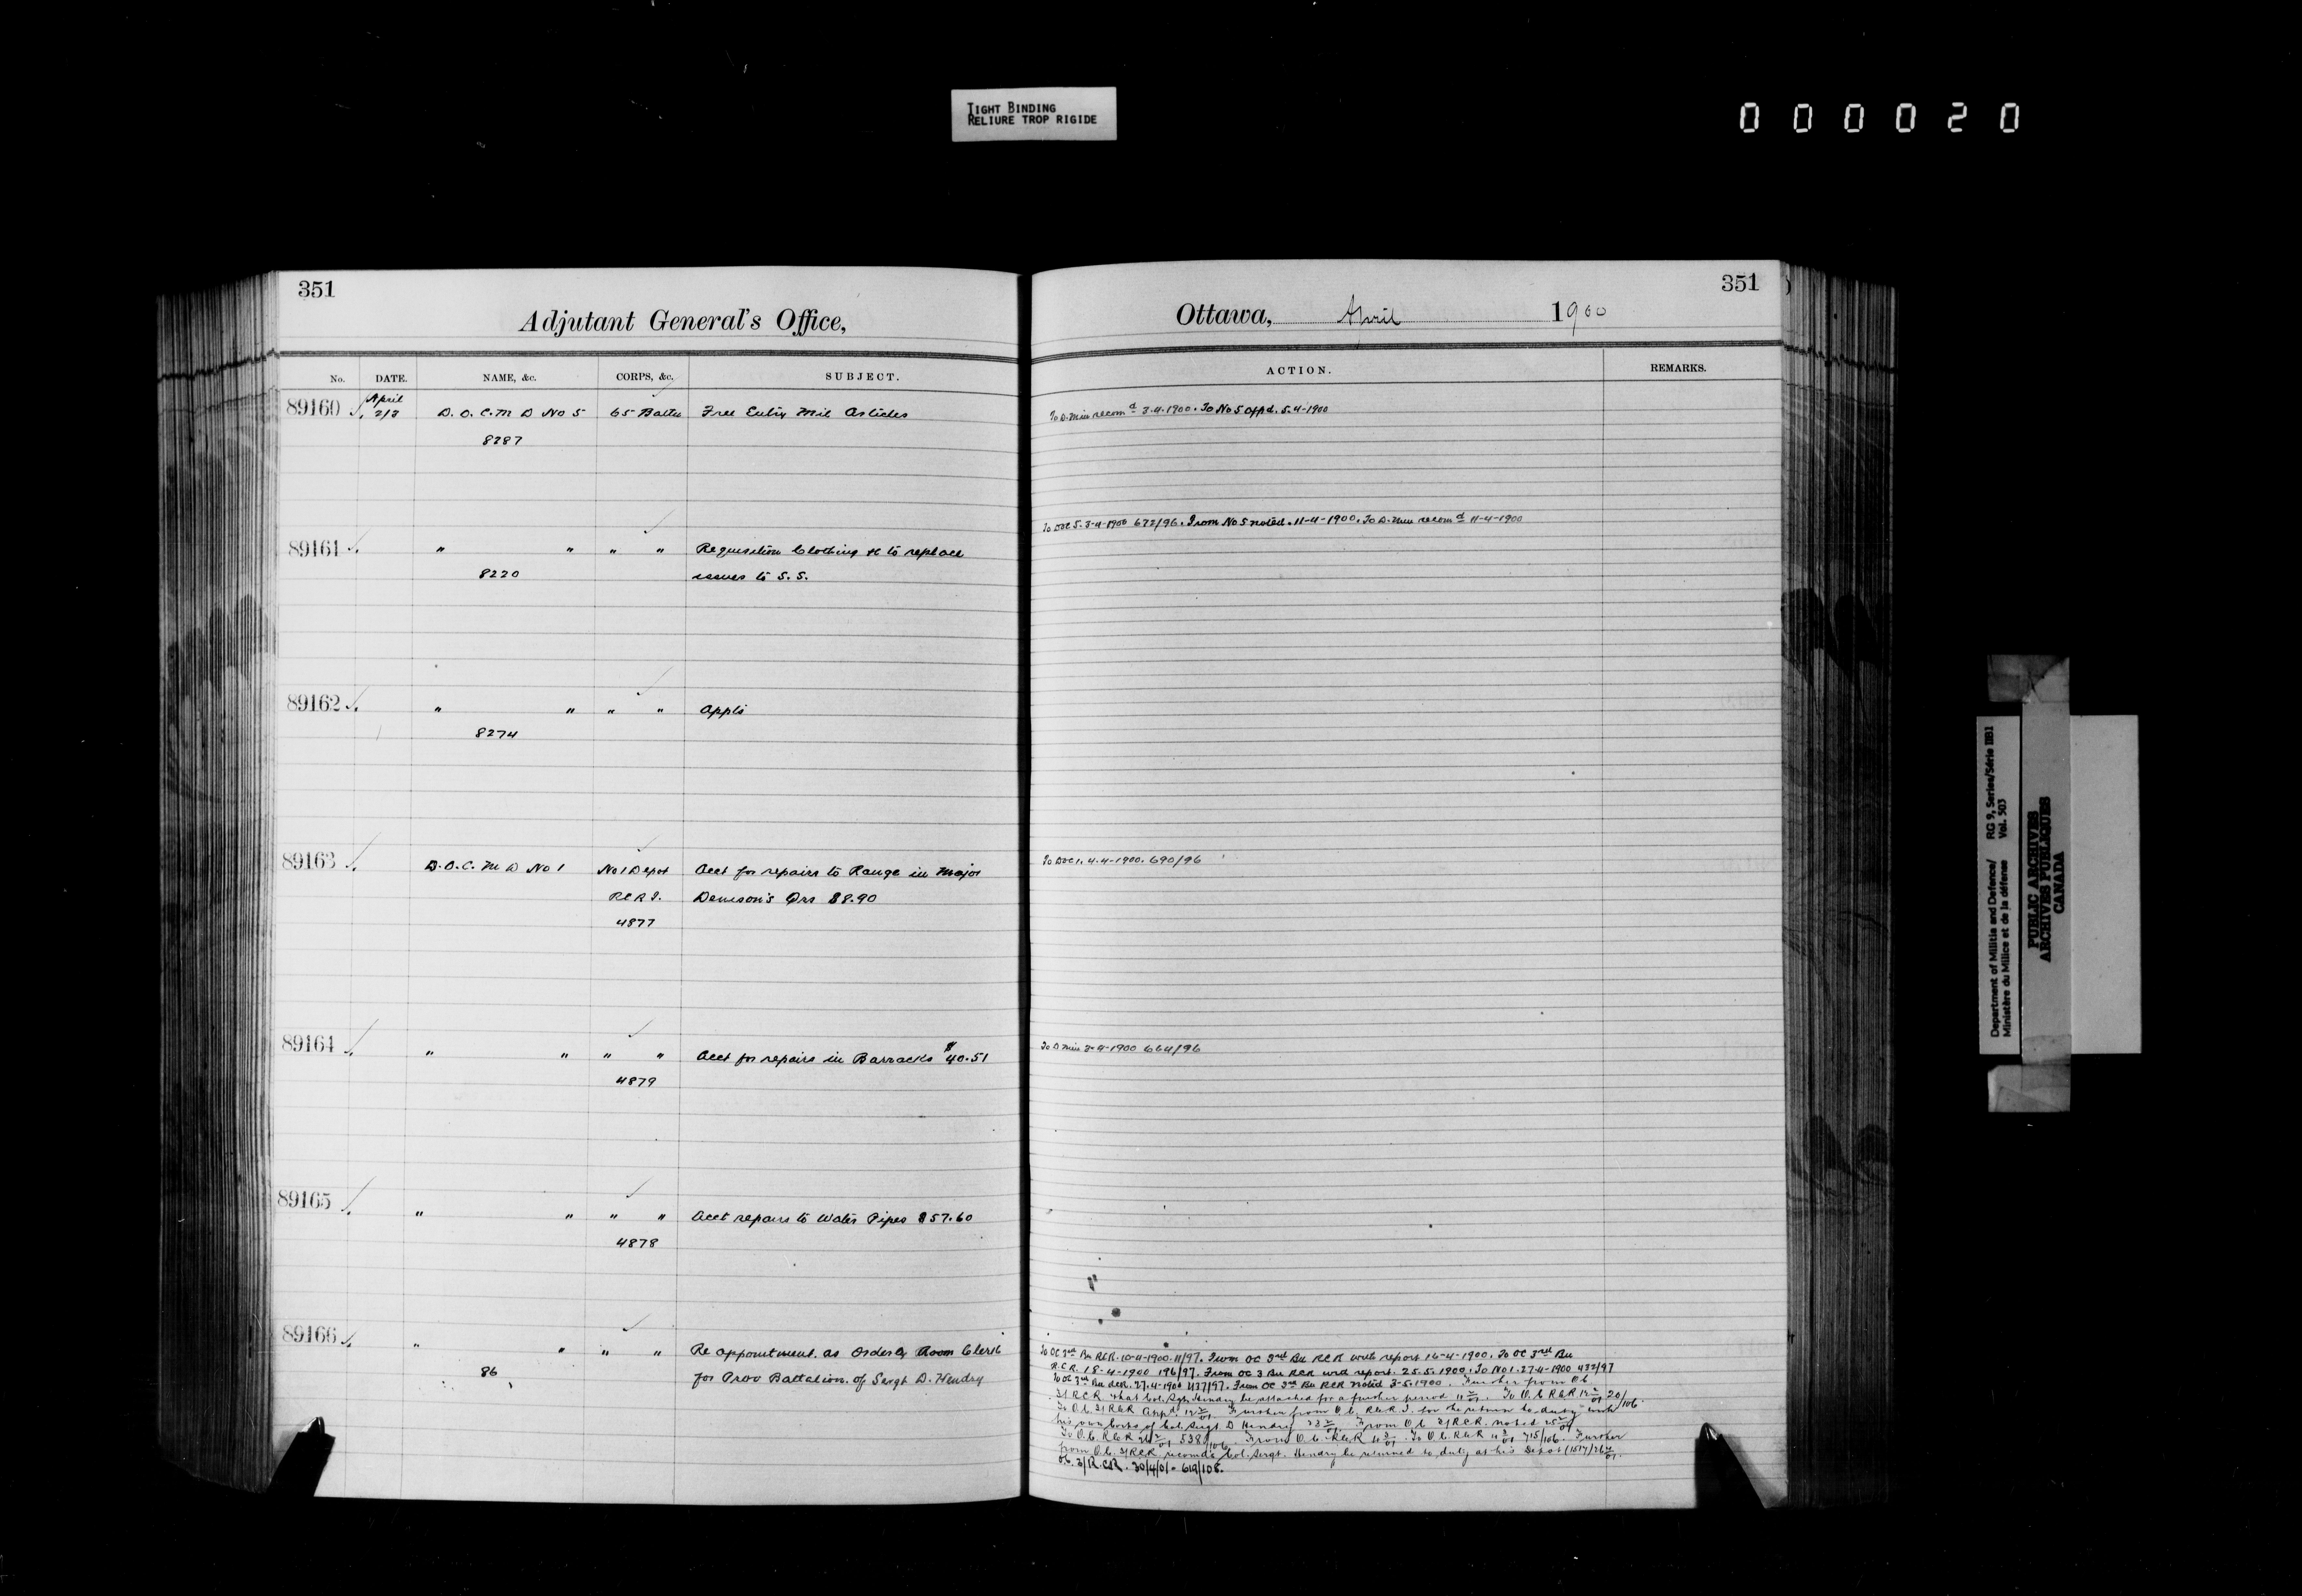 TIGHT BINDING
RELIURE TROP RIGIDE
000020
351
Adjutant General's Office,
No. DATE. NAME, &c. CORPS, &c. SUBJECT.
89160 April 2/3 D. O. C. M D No 5 65 Battn Free Entry Mil Articles
8287
89161 " " " " Requisition Clothing &c to replace
8220 issues to S. S.
89162 " " " " Appls
8274
89163 D. O. C. M D No 1 No 1 Depot Acct for repairs to Range in Major
RCRI. Denison's Qrs $8.90
4877
89164 " " " " Acct for repairs in Barracks $40.51
4879
89165 " " " " Acct repairs to Water Pipes $57.60
4878
89166 " " " " Re appointment. as Orderly Room Clerk
86 for Prov Battalion. of Sergt D. Hendry
351
Ottawa, April 1900
ACTION. REMARKS.
To D. Min recomd 3.4.1900. To No 5 appd. 5.4-1900
To DOC 5. 3-4-1900 672/96. From No 5 noted. 11-4-1900. To D. Min recomd 11-4-1900
To DOC 1. 4.4-1900. 690/96
To D Min 3-4-1900 664/96
To OC 3rd Bn RCR. 10-4-1900. 11/97. From OC 3rd Bn RCR with report 16-4-1900. To OC 3rd Bn
R.C.R. 18-4-1900 196/97. From OC 3 Bn RCR with report. 25.5.1900. To No 1. 27-4-1900 432/97
To OC 3rd Bn RCR. 27.4-1900 437/97. From OC 3rd Bn RCR noted 3-5.1900. Further from O.C.
3/RCR that Col. Sgt. Hendry be attached for a further period To O.C. RCR 20/106.
To O.C. 3/RCR Appd Further from O.C. R.C.R.I. for the return to duty with
his own Corps of Col. Sergt D Hendry From O.C. 3/RCR. noted
To O.C. RCR 538/106 From O.C. RCR To O.C. RCR 715/106. Further
from O.C. 3/RCR recomds Col. Sergt. Hendry be returned to duty at his Depot
OC. 3/R.C.R. 30/4/01. 619/108.
Department of Militia and Defence/ RG 9, Series/Série IIB1
Ministère du Milice et de la défense Vol. 503
PUBLIC ARCHIVES
ARCHIVES PUBLIQUES
CANADA